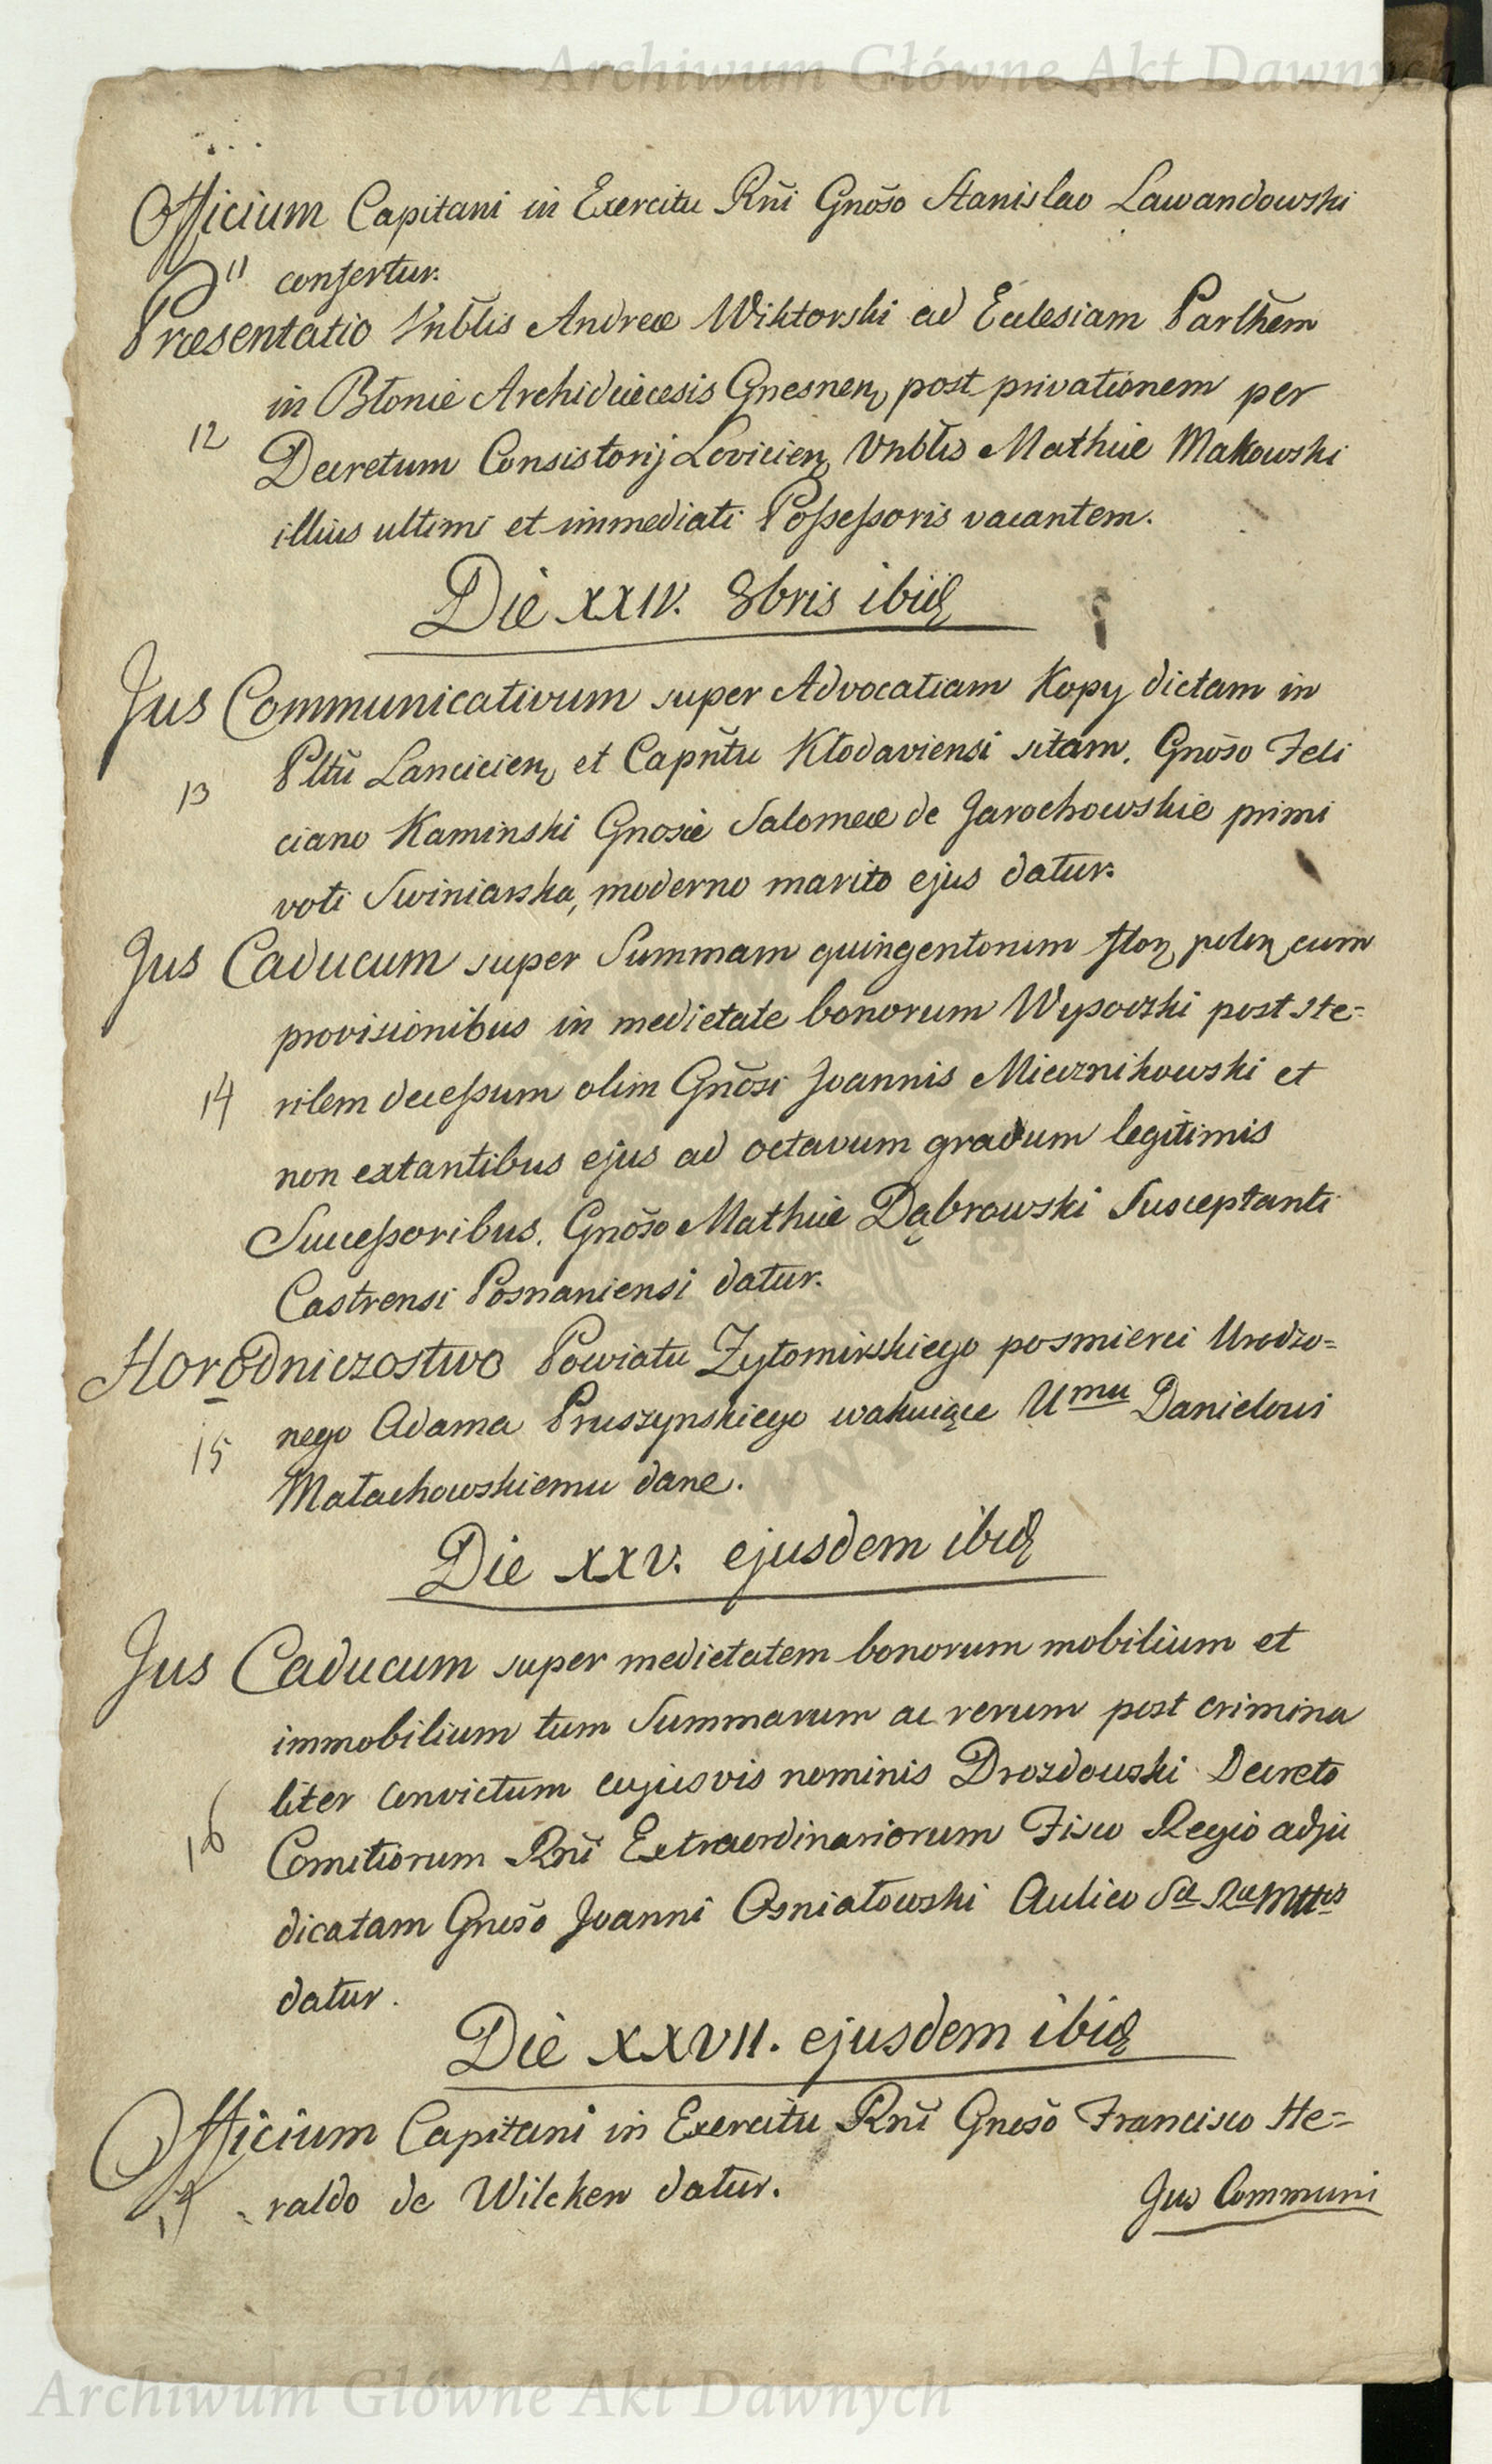 Archiwum Główne Akt Dawnych
Officium Capitani in Exercitu Rñi Gnõso Stanislao Lawandowski
11 confertur.
Præsentatio Vnblis Andreæ Wiktorski ad Ecclesiam Parlhem
in Błonie Archidiæcesis Gnesnen, post privationem per
12
Decretum Consistorij Lovicien, Vnblis Mathiæ Makowski
illius ultimi et immediati Possessoris vacantem.
Die XXIV. 8bris ibid
Jus Communicativum super Advocatiam Kopy dictam in
Pltũ Lancicien, et Capñtu Kłodaviensi sitam. Gnõso Feli
13
ciano Kaminski Gnosæ Salomeæ de Jarochowskie primi
voti Swiniarska, moderno marito ejus datur.
Jus Caducum super Summam quingentorum flor, polon, cum
provisionibus in medietate bonorum Wysoczki post ste=
14 rilem decessum olim Gnõsi Joannis Miecznikowski et
non extantibus ejus ad octavum gradum legitimis
Successoribus. Gnõso Mathiæ Dąbrowski Susceptanti
Castrensi Posnaniensi datur.
Horodniczostwo Powiatu Zytomirskiego posmierci Urodzo=
15 nego Adama Pruszynskiego wakuiące Umu Danielowi
Małachowskiemu dane.
Die XXV. ejusdem ibid
Jus Caducum super medietatem bonorum mobilium et
immobilium tum Summarum ac rerum post crimina
liter convictum cujusvis nominis Drozdowski Decreto
16 Comitiorum Rñi Extraordinariorum Fisco Regio adju
dicatam Gnosõ Joanni Osniałowski Aulico Sæ Ræ Mttis
datur.
Die XXVII. ejusdem ibid
Officium Capitani in Exercitu Rñi Gnosõ Francisco He=
17 raldo de Wilcken datur.
Jus Communi
Archiwum Główne Akt Dawnych